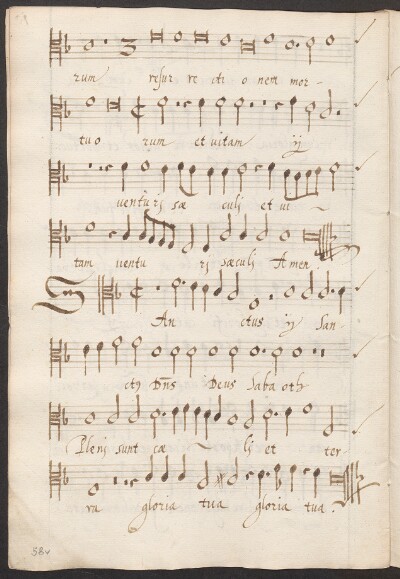 rum resur re cti o nem mor-
tuo rum et vitam ij
venturj sæ culj et vi ~
tam ventu rj sæculj Amen.
S An ctus ij San-
ctus Dns Deus Sabaoth
Plenj sunt cæ ~ lj et ter-
ra gloria tua gloria tua.
58v